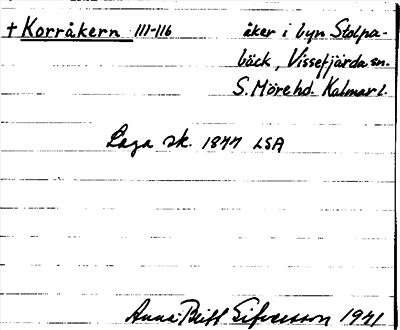 + Korråkern 111-116 åker i byn Stolpa-
bäck, Vissefjärda sn.
S. Möre hd. Kalmar l.
Laga sk. 1877 LSA
Anna-Britt Sifversson 1941